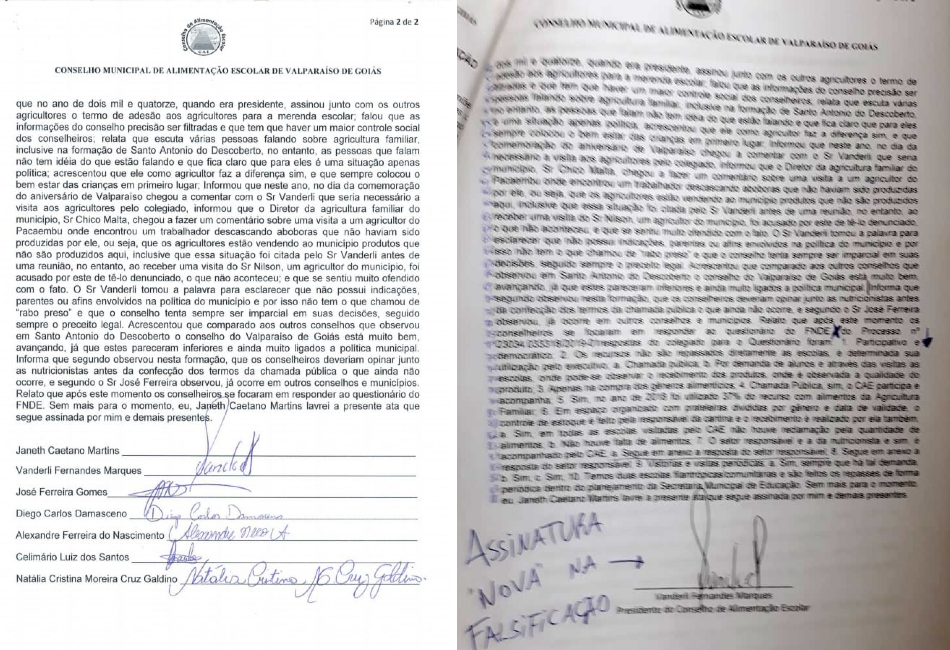 Página 2 de 2
CONSELHO MUNICIPAL DE ALIMENTAÇÃO ESCOLAR DE VALPARAÍSO DE GOIÁS
que no ano de dois mil e quatorze, quando era presidente, assinou junto com os outros
agricultores o termo de adesão aos agricultores para a merenda escolar; falou que as
informações do conselho precisão ser filtradas e que tem que haver um maior controle social
dos conselheiros; relata que escuta várias pessoas falando sobre agricultura familiar,
inclusive na formação de Santo Antonio do Descoberto, no entanto, as pessoas que falam
não tem idéia do que estão falando e que fica claro que para eles é uma situação apenas
politica; acrescentou que ele como agricultor faz a diferença sim, e que sempre colocou o
bem estar das crianças em primeiro lugar; Informou que neste ano, no dia da comemoração
do aniversário de Valparaíso chegou a comentar com o Sr Vanderli que seria necessário a
visita aos agricultores pelo colegiado, informou que o Diretor da agricultura familiar do
município, Sr Chico Malta, chegou a fazer um comentário sobre uma visita a um agricultor do
Pacaembu onde encontrou um trabalhador descascando aboboras que não haviam sido
produzidas por ele, ou seja, que os agricultores estão vendendo ao município produtos que
não são produzidos aqui, inclusive que essa situação foi citado pelo Sr Vanderli antes de
uma reunião, no entanto, ao receber uma visita do Sr Nilson, um agricultor do município, foi
acusado por este de tê-lo denunciado, o que não aconteceu; e que se sentiu muito ofendido
com o fato. O Sr Vanderli tomou a palavra para esclarecer que não possui indicações,
parentes ou afins envolvidos na política do município e por isso não tem o que chamou de
“rabo preso” e que o conselho tenta sempre ser imparcial em suas decisões, seguido
sempre o preceito legal. Acrescentou que comparado aos outros conselhos que observou
em Santo Antonio do Descoberto o conselho do Valparaíso de Goiás está muito bem,
avançando, já que estes pareceram inferiores e ainda muito ligados a política municipal.
Informa que segundo observou nesta formação, que os conselheiros deveriam opinar junto
as nutricionistas antes da confecção dos termos da chamada pública o que ainda não
ocorre, e segundo o Sr José Ferreira observou, já ocorre em outros conselhos e municípios.
Relato que após este momento os conselheiros se focaram em responder ao questionário do
FNDE. Sem mais para o momento, eu, Janeth Caetano Martins lavrei a presente ata que
segue assinada por mim e demais presentes.
Janeth Caetano Martins
Vanderli Fernandes Marques
José Ferreira Gomes
Diego Carlos Damasceno Diego Carlos Damasceno
Alexandre Ferreira do Nascimento
Celimário Luiz dos Santos
Natália Cristina Moreira Cruz Galdino Natália Cristina M Cruz Galdino
CONSELHO MUNICIPAL DE ALIMENTAÇÃO ESCOLAR DE VALPARAÍSO DE GOIÁS
dois mil e quatorze, quando era presidente, assinou junto com os outros agricultores o termo de
adesão aos agricultores para a merenda escolar; falou que as informações do conselho precisão ser
filtradas e que tem que haver um maior controle social dos conselheiros, relata que escuta várias
pessoas falando sobre agricultura familiar, inclusive na formação de Santo Antonio do Descoberto,
no entanto, as pessoas que falam não tem idéia do que estão falando e que fica claro que para eles
é uma situação apenas politica, acrescentou que ele como agricultor faz a diferença sim, e que
sempre colocou o bem estar das crianças em primeiro lugar; Informou que neste ano, no dia da
comemoração do aniversário de Valparaíso chegou a comentar com o Sr Vanderli que seria
necessário a visita aos agricultores pelo colegiado, informou que o Diretor da agricultura familiar do
município, Sr Chico Malta, chegou a fazer um comentário sobre uma visita a um agricultor do
Pacaembu onde encontrou um trabalhador descascando aboboras que não haviam sido produzidas
por ele, ou seja, que os agricultores estão vendendo ao município produtos que não são produzidos
aqui, inclusive que essa situação foi citada pelo Sr Vanderli antes de uma reunião, no entanto, ao
receber uma visita do Sr Nilson, um agricultor do município, foi acusado por este de tê-lo denunciado,
o que não aconteceu, e que se sentiu muito ofendido com o fato. O Sr Vanderli tomou a palavra para
esclarecer que não possui indicações, parentes ou afins envolvidos na política do município e por
isso não tem o que chamou de “rabo preso” e que o conselho tenta sempre ser imparcial em suas
decisões, seguido sempre o preceito legal. Acrescentou que comparado aos outros conselhos que
observou em Santo Antonio do Descoberto o conselho do Valparaíso de Goiás está muito bem,
avançando, já que estes pareceram inferiores e ainda muito ligados a política municipal. Informa que
segundo observou nesta formação, que os conselheiros deveriam opinar junto as nutricionistas antes
da confecção dos termos da chamada pública o que ainda não ocorre, e segundo o Sr José Ferreira
observou, já ocorre em outros conselhos e municípios. Relato que após este momento os
conselheiros se focaram em responder ao questionário do FNDE do Processo nº
respostas do colegiado para o Questionário foram: 1. Participativo e
democrático. 2. Os recursos não são repassados diretamente as escolas, e determinada sua
utilização pelo executivo. a. Chamada pública, b. Por demanda de alunos e através das visitas as
escolas, onde pode-se observar o recebimento dos produtos, onde é observada a qualidade do
produto, 3. Apenas na compra dos gêneros alimentícios. 4. Chamada Pública, sim, o CAE participa e
acompanha; 5. Sim, no ano de 2018 foi utilizado 37% do recurso com alimentos da Agricultura
Familiar; 6. Em espaço organizado com prateleiras dividas por gênero e data de validade, o
controle de estoque é feito pela responsável da cantina e o recebimento é realizado por ela também,
a. Sim, em todas as escolas visitadas pelo CAE não houve reclamação pela quantidade de
alimentos. b. Não houve falta de alimentos. 7. O setor responsável é a da nutricionista e sim, é
acompanhado pelo CAE. a. Segue em anexo a resposta do setor responsável; 8. Segue em anexo a
resposta do setor responsável; 9. Vistorias e visitas periódicas, a. Sim, sempre que há tal demanda.
b. Sim, c. Sim, 10. Temos duas escolas filantrópicas/comunitárias e são feitos os repasses de forma
periódica dentro do planejamento da Secretaria Municipal de Educação. Sem mais para o momento,
eu, Janeth Caetano Martins lavrei a presente ata que segue assinada por mim e demais presentes.
ASSINATURA
"NOVA" NA →
FALSIFICAÇÃO
Vanderli Fernandes Marques
Presidente do Conselho de Alimentação Escolar